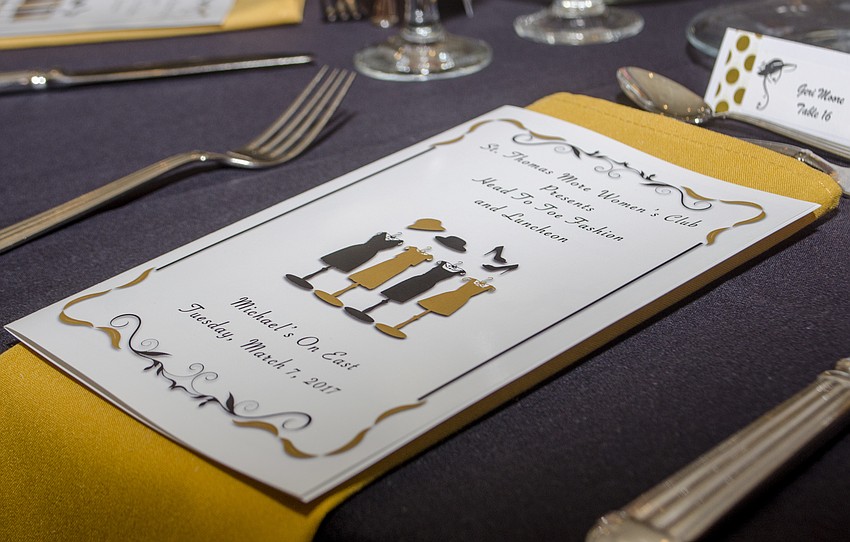 St. Thomas More Women's Club
Presents
Head To Toe Fashion
and Luncheon
Michael's On East
Tuesday, March 7, 2017
Geri Moore
Table 16